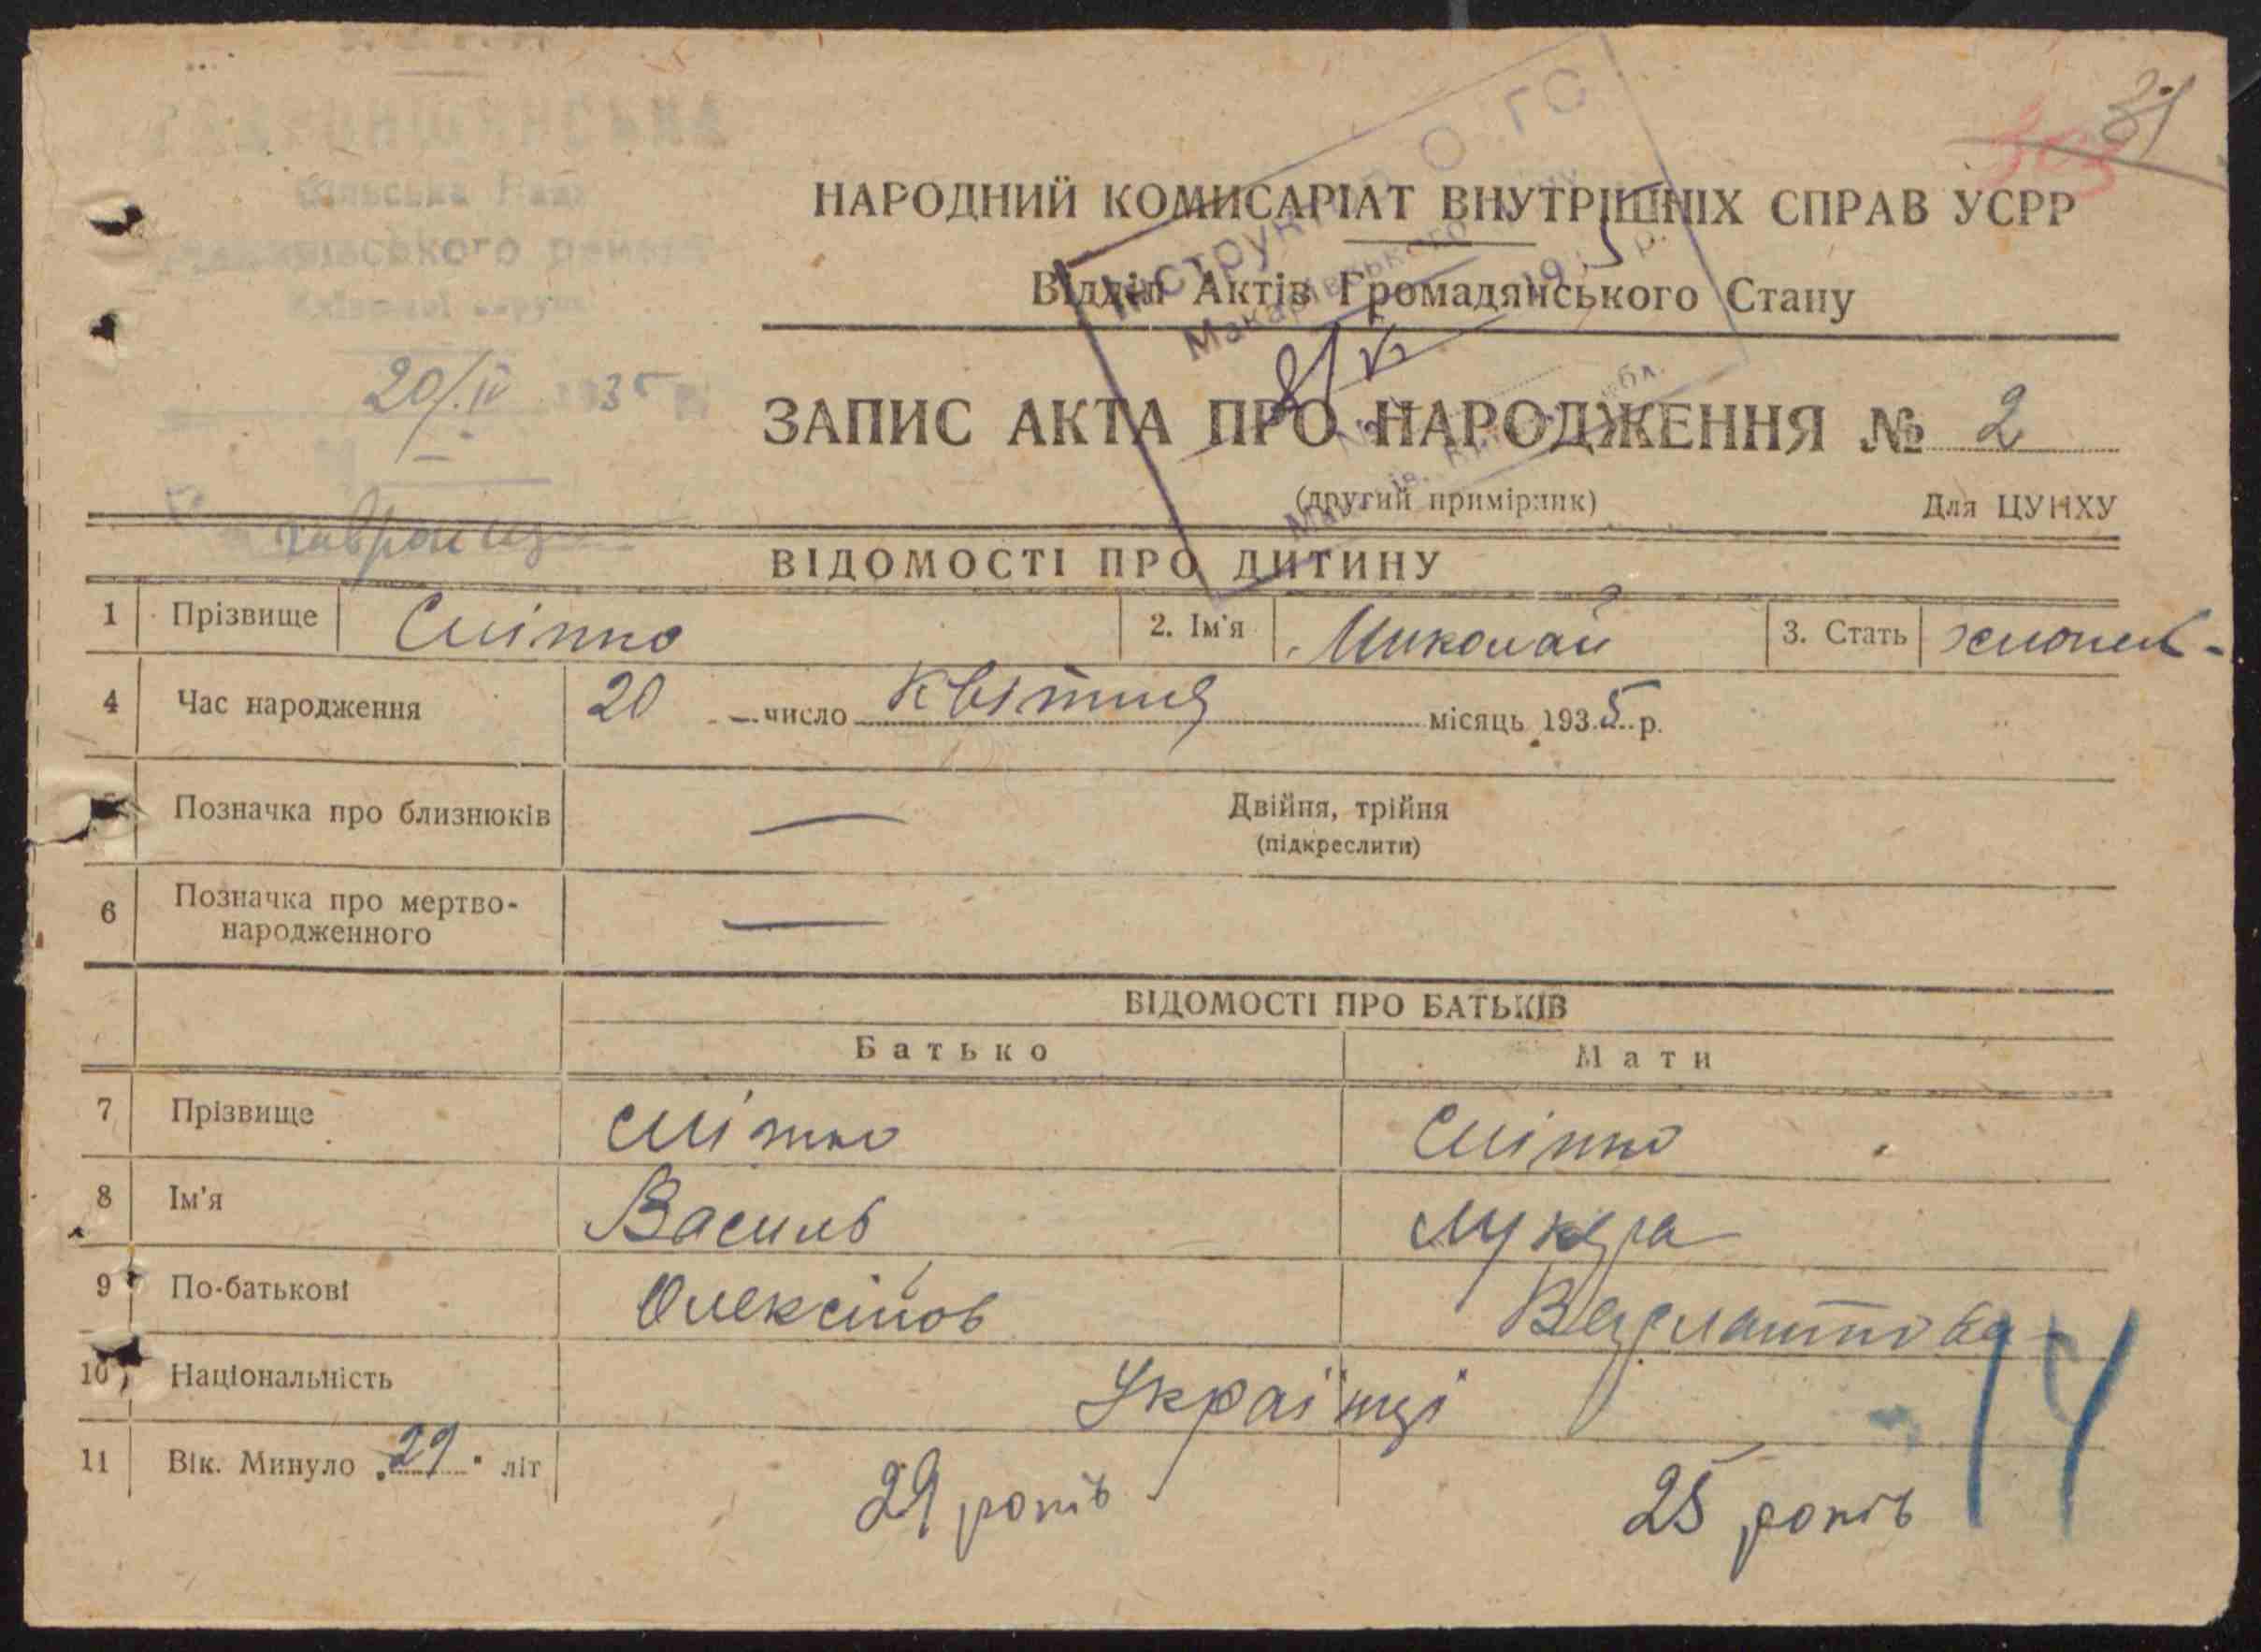 ГАВРОНЩАНСЬКА
Сільська Рада
Макарівського району
20/IV 1935 р.
№
НАРОДНИЙ КОМИСАРІАТ ВНУТРІШНІХ СПРАВ УСРР
Відділ Актів Громадянського Стану
ЗАПИС АКТА ПРО НАРОДЖЕННЯ № 2
(другий примірник) Для ЦУНХУ
ВІДОМОСТІ ПРО ДИТИНУ
1 Прізвище Сліпко 2. Ім'я Миколай 3. Стать хлопець
4 Час народження 20 число квітня місяць 1935 р.
Позначка про близнюків — Двійня, трійня
(підкреслити)
6 Позначка про мертво-
народженного —
ВІДОМОСТІ ПРО БАТЬКІВ
Батько Мати
7 Прізвище Сліпко Сліпко
8 Ім'я Василь Лукера
9 По-батькові Олексійов
10 Національність Українці
11 Вік. Минуло „29" літ 29 років 25 років
14